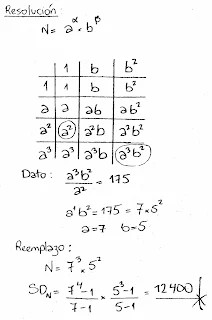 Resolución:
N = a^α × b^β
1 b b²
1 1 b b²
a a ab ab²
a² a² a²b a²b²
a³ a³ a³b a³b²
Dato: a³b²/a² = 175
a¹b² = 175 = 7×5²
a=7 b=5
Reemplazo:
N = 7³ × 5²
SD_N = 7⁴-1/7-1 × 5³-1/5-1 = 12400